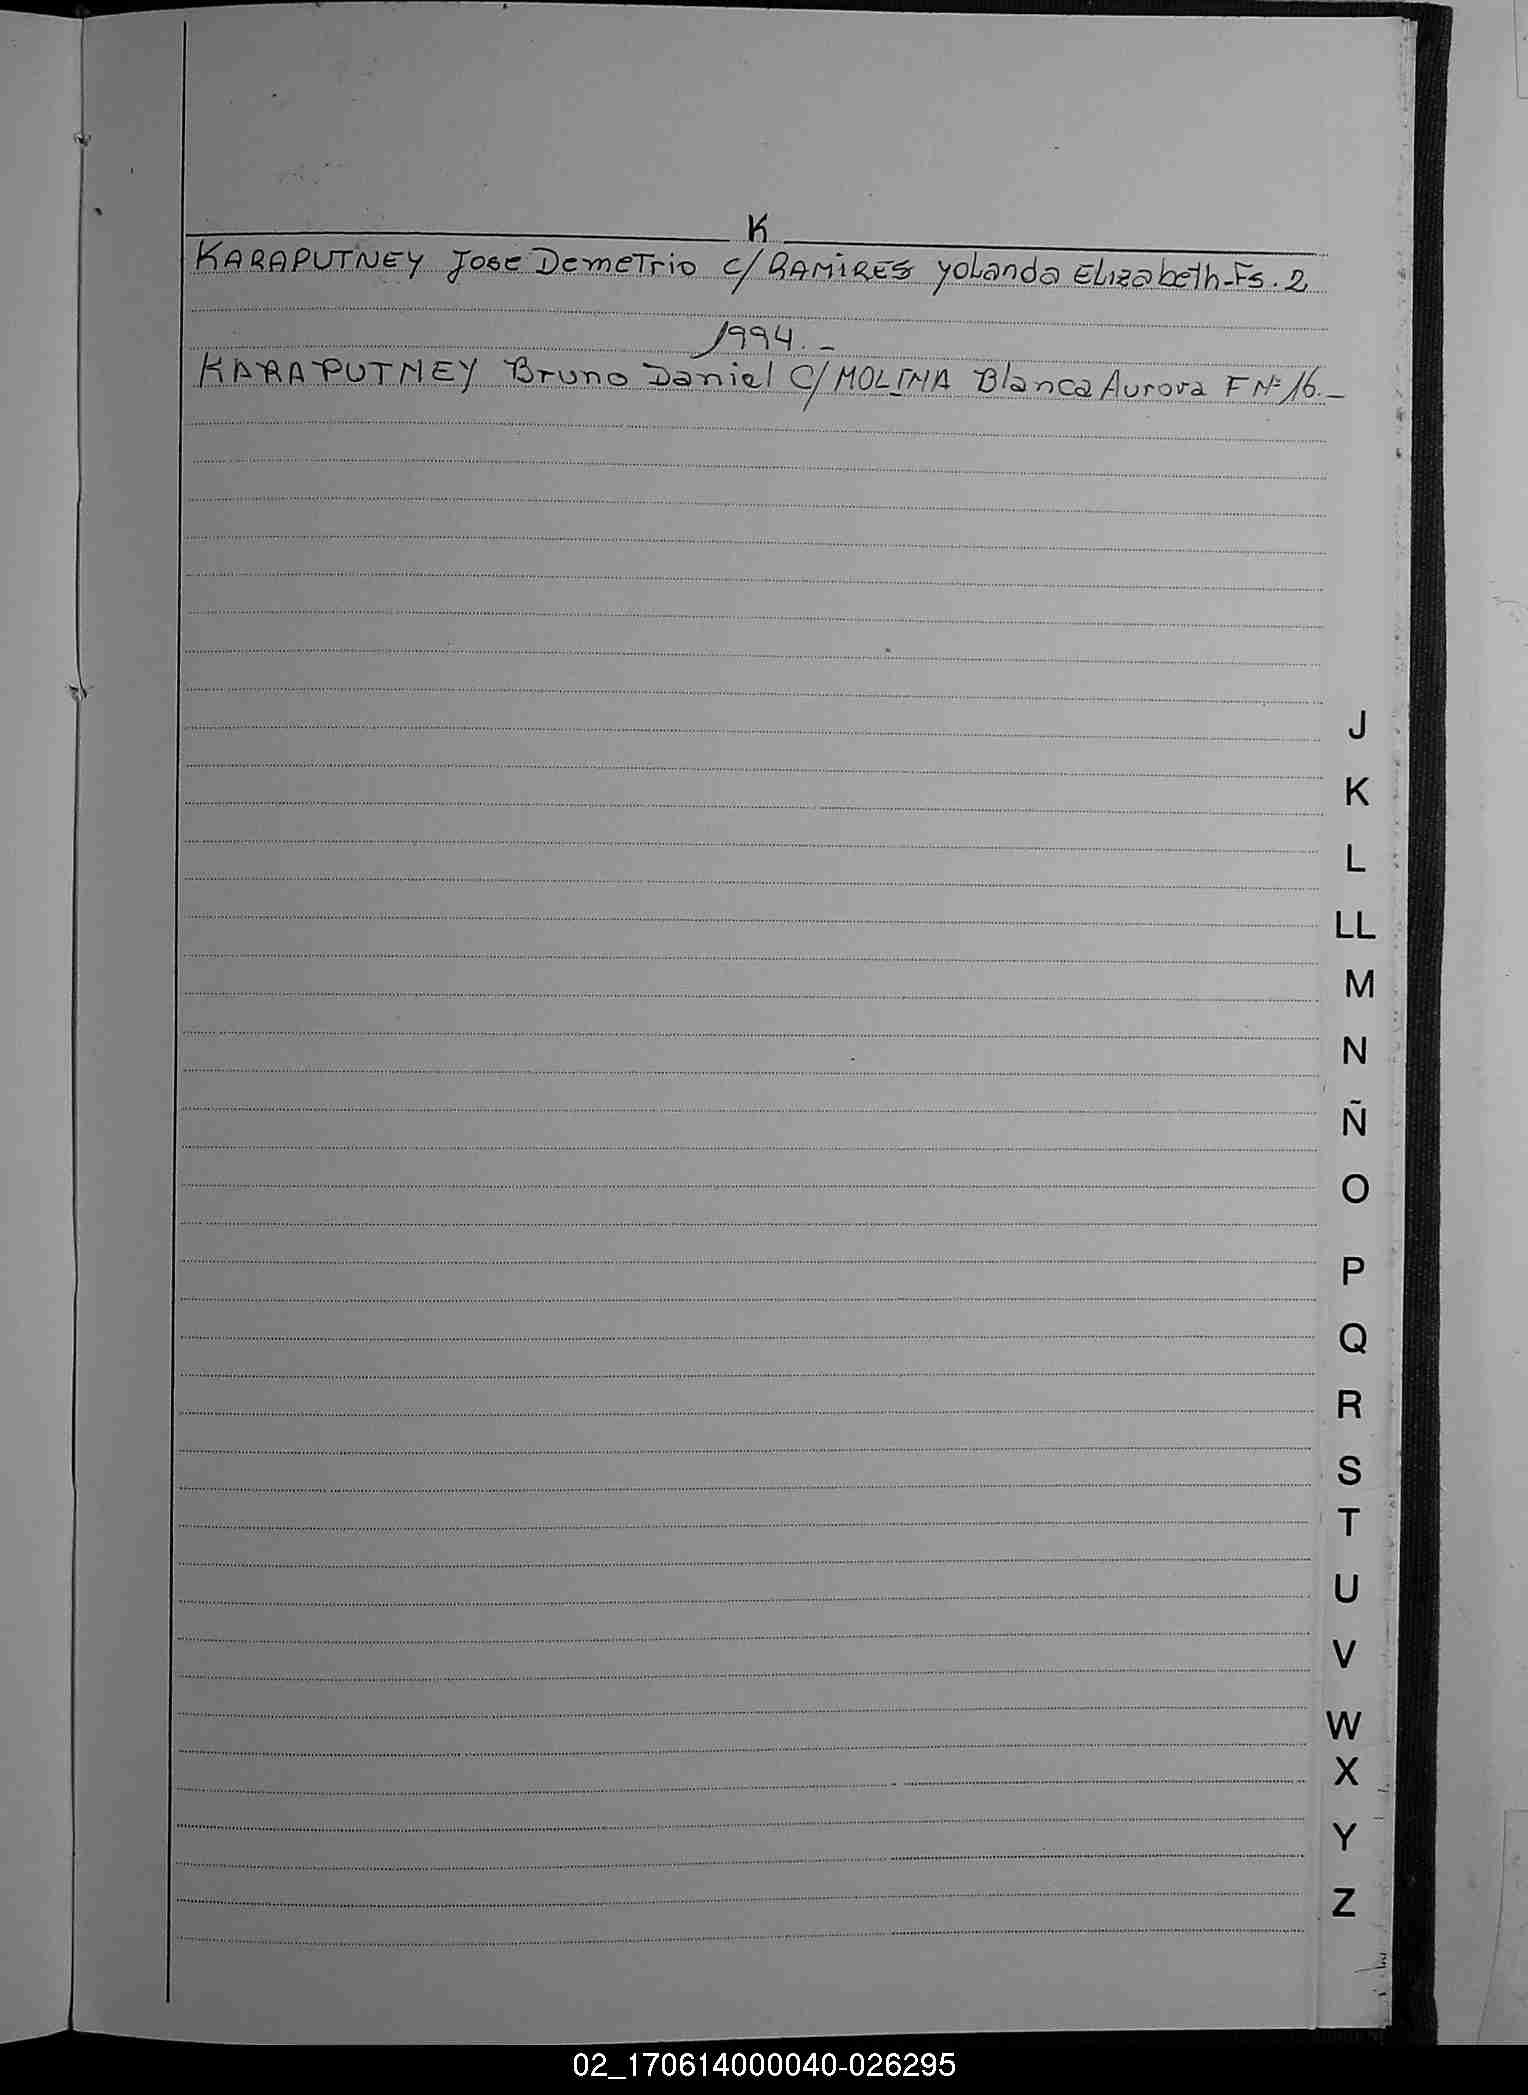 K
KARAPUTNEY Jose Demetrio c/ RAMIRES Yolanda Elizabeth-Fs. 2
1994.-
KARAPUTNEY Bruno Daniel C/ MOLINA Blanca Aurora F Nº 16.-
J
K
L
LL
M
N
Ñ
O
P
Q
R
S
T
U
V
W
X
Y
Z
02_170614000040-026295